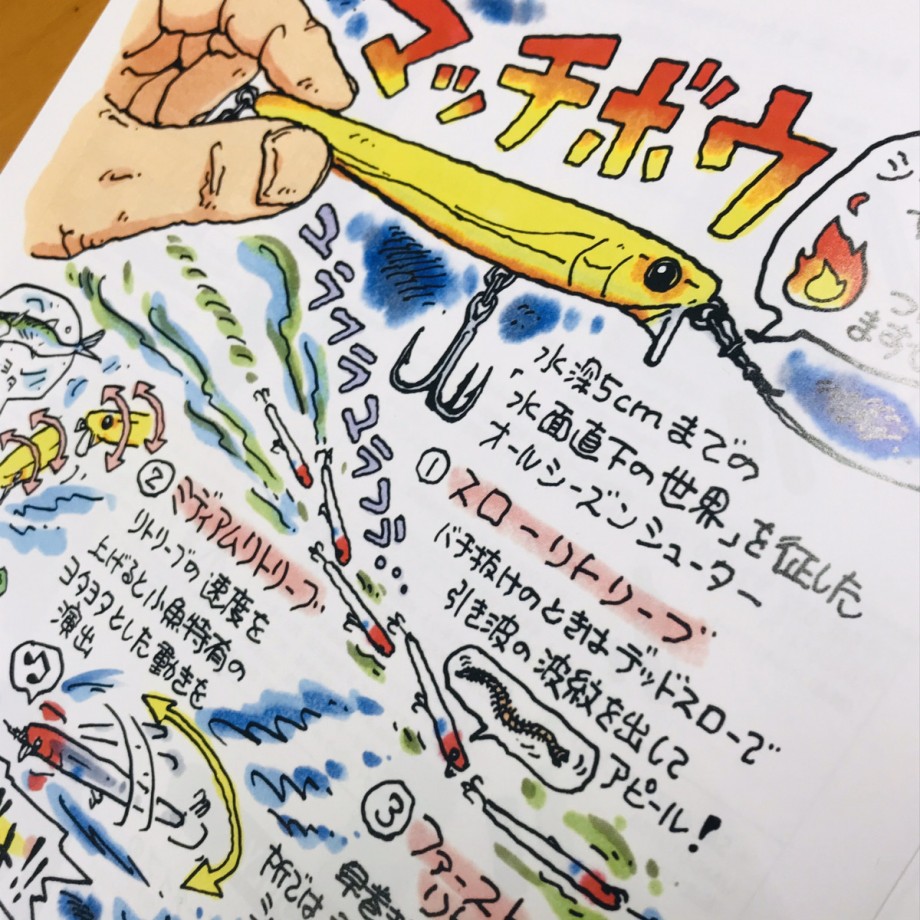 マッチボウ
ユラフラユラフラ‥
水深5cmまでの
「水面直下の世界」を征した
オールシーズンシューター
①スローリトリーブ
バチ抜けのときはデッドスローで
引き波の波紋を出して
アピール!
②ミディアムリトリーブ
リトリーブの速度を
上げると小魚特有の
ヨタヨタとした動きを
演出
③ファースト